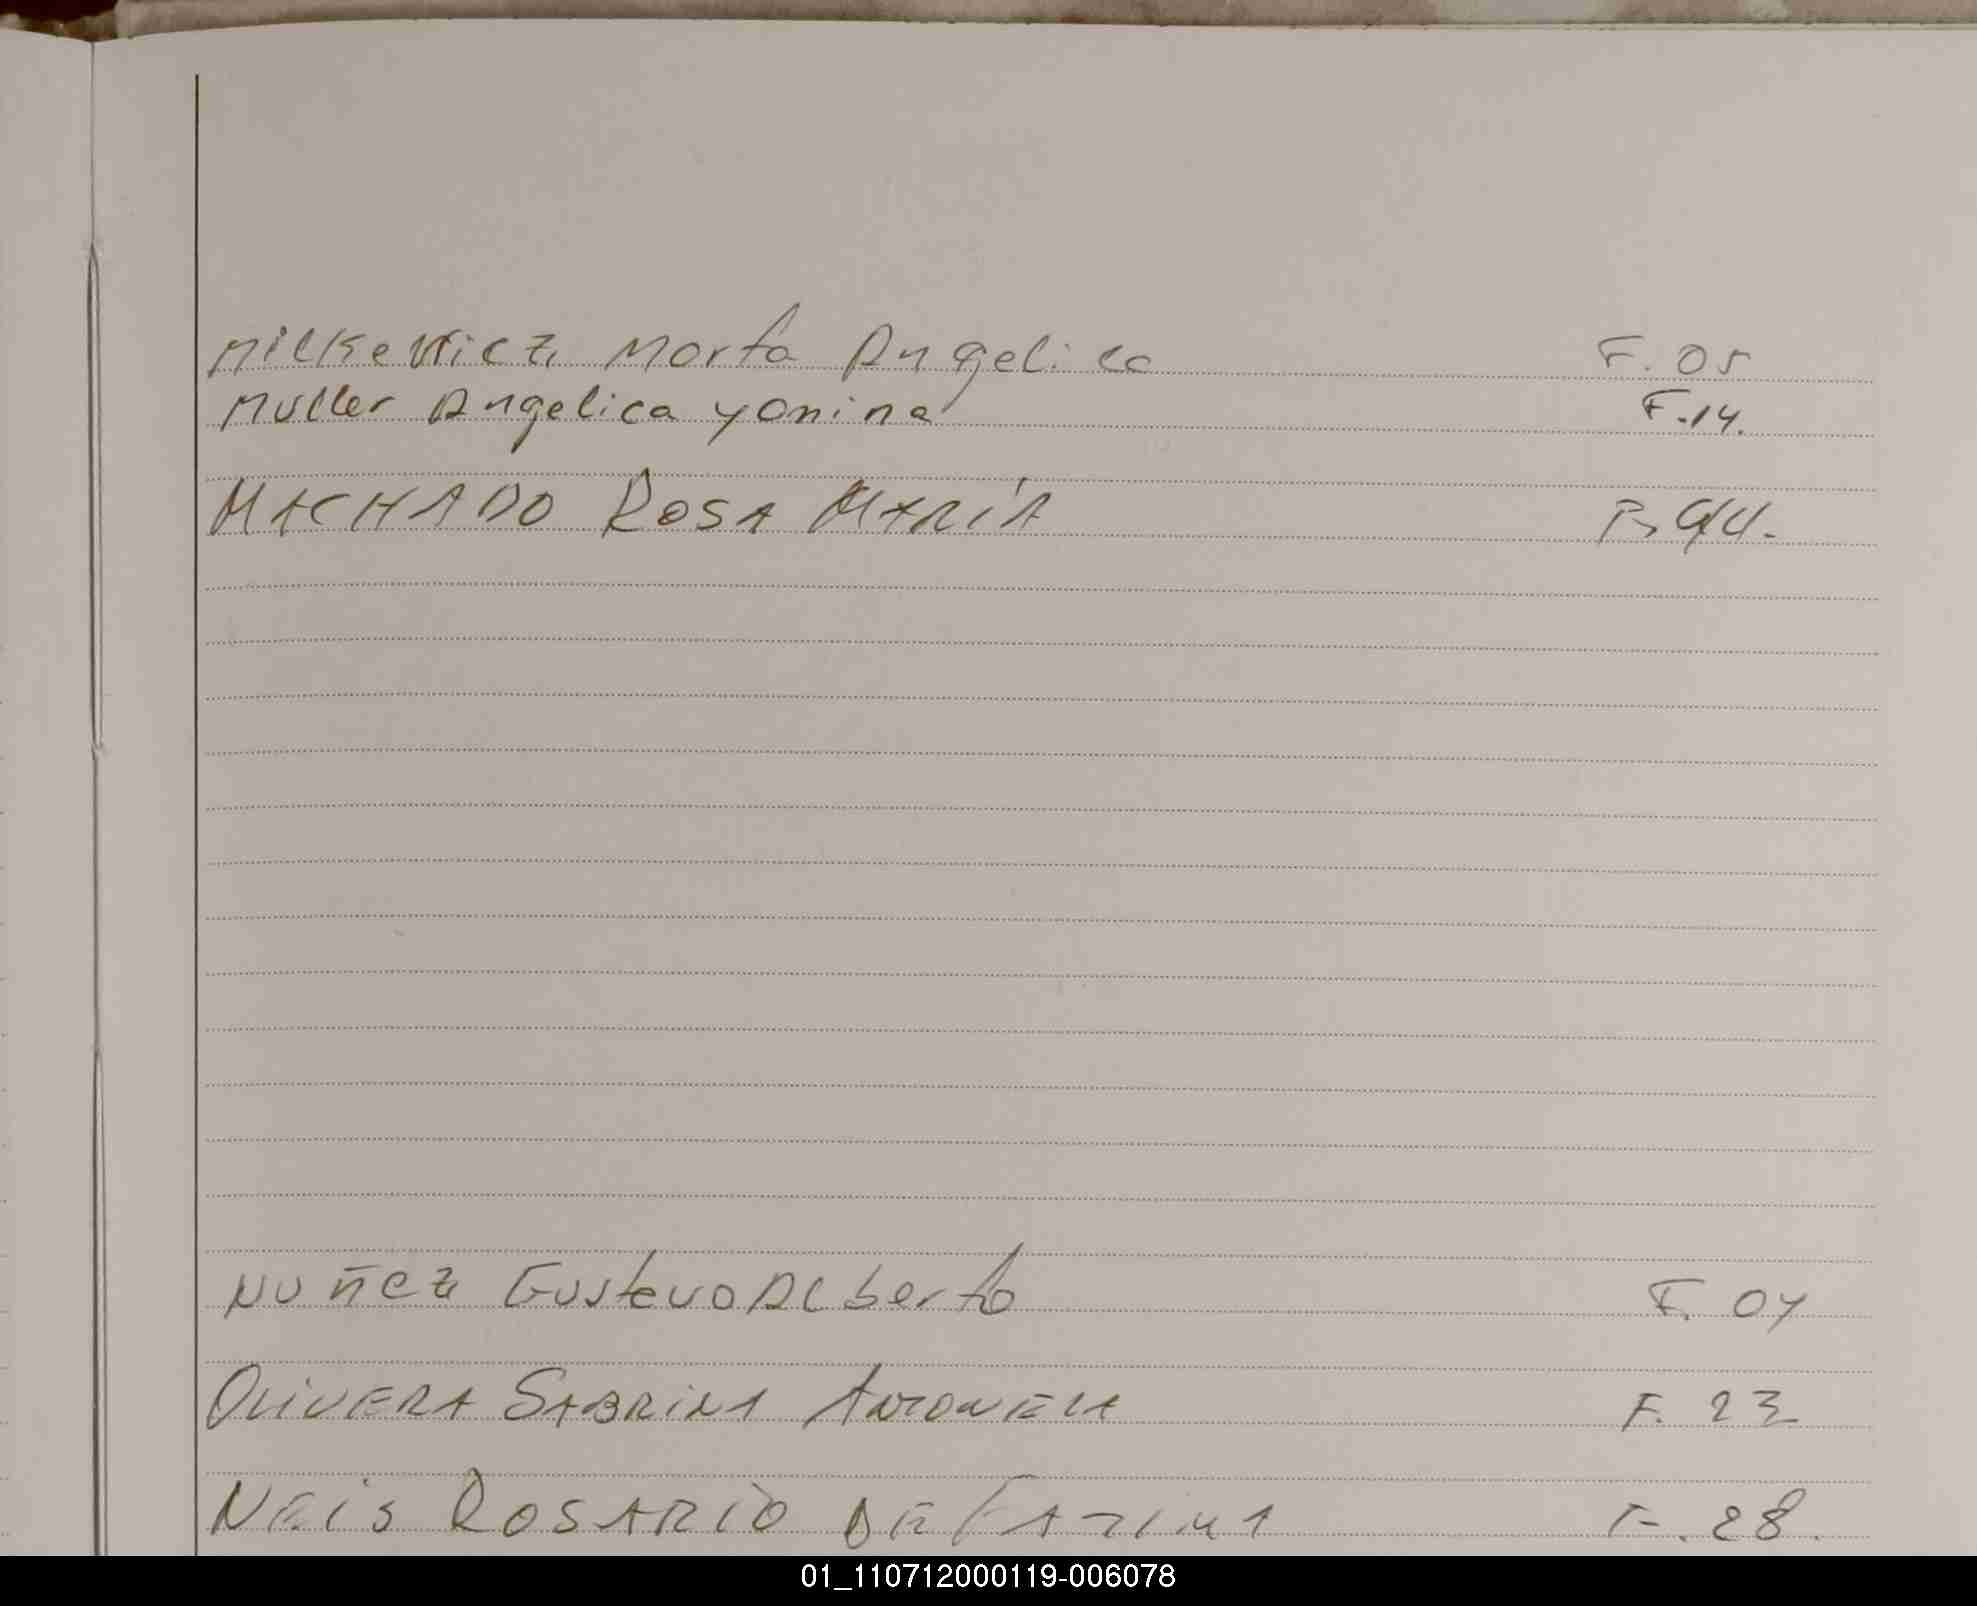 Milkewicz Marta Angelica F. 05
Muller Angelica Yanina F.14.
MACHADO ROSA MARÍA 44.
Nuñez Gustavo Alberto F. 04
OLIVERA SABRINA ANTONELLA F. 23
NEIS ROSARIO DE FATIMA F. 28.
01_110712000119-006078